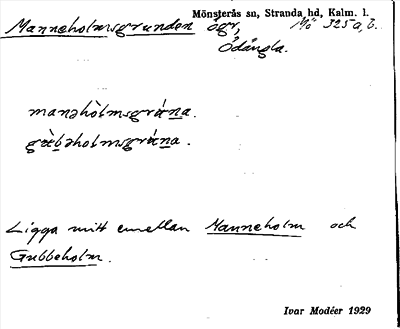 Mönsterås sn, Stranda hd, Kalm. l.
Manneholmsgrunden ögr, Mö 325 a, b.
Ödängla.
manəhòlmsgrúna.
gùbəholmsgrúna.
Ligga mitt emellan Manneholm och
Gubbeholm.
Ivar Modéer 1929